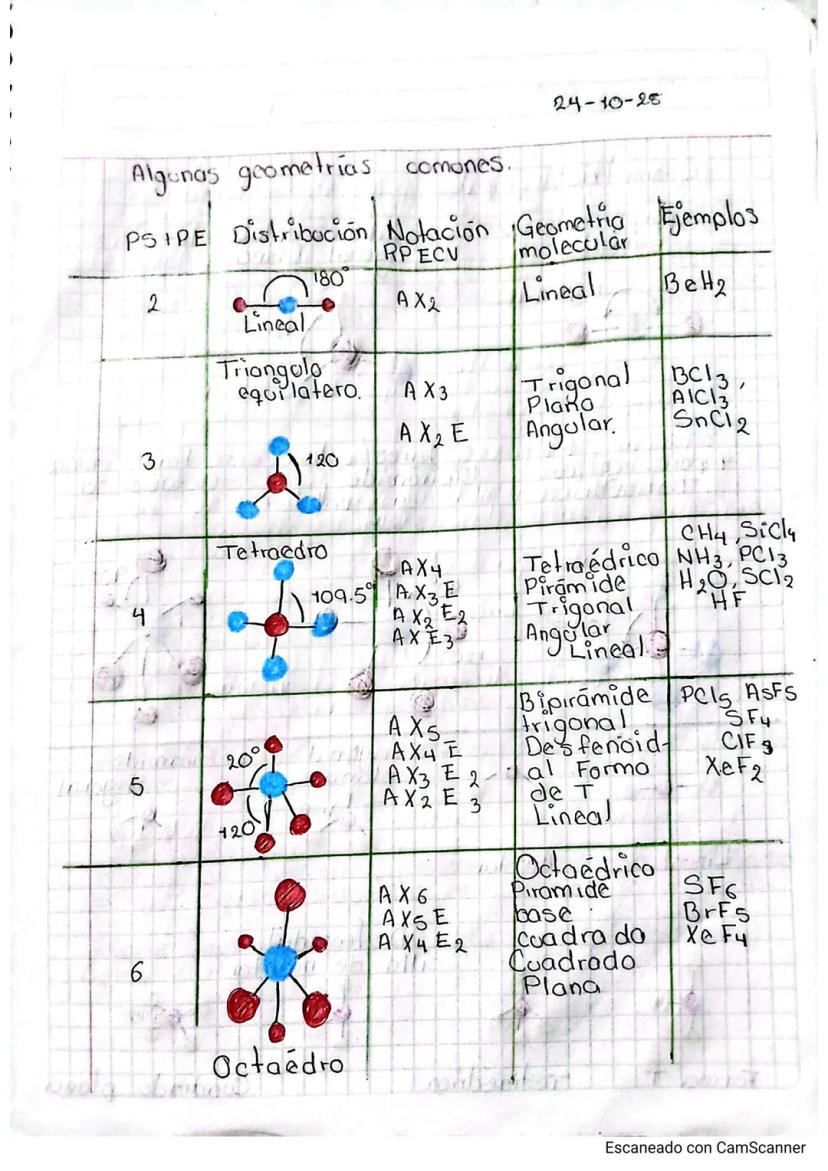 24-10-25
Algunas geometrías comunes.
PS+PE Distribución Notación RPECV Geometria molecular Ejemplos
2
180°
Lineal
AX2
Lineal
BeH2
3
Triangulo
equilatero.
120
AX3
AX2E
Trigonal
Plano
Angular.
BCl3,
AlCl3
SnCl2
4
Tetraedro
109.5°
AX4
AX3E
AX2E2
AXE3
Tetraédrico
Pirámide
Trigonal
Angular
Lineal
CH4, SiCl4
NH3, PCl3
H2O, SCl2
HF
5
20°
120
AX5
AX4E
AX3E2
AX2E3
Bipirámide
trigonal
Desfenoid-
al Forma
de T
Lineal
PCl5 AsF5
SF4
ClF3
XeF2
6
Octaédro
AX6
AX5E
AX4E2
Octaédrico
Piramide
base
cuadrada
Cuadrado
Plana
SF6
BrF5
XeF4
Escaneado con CamScanner